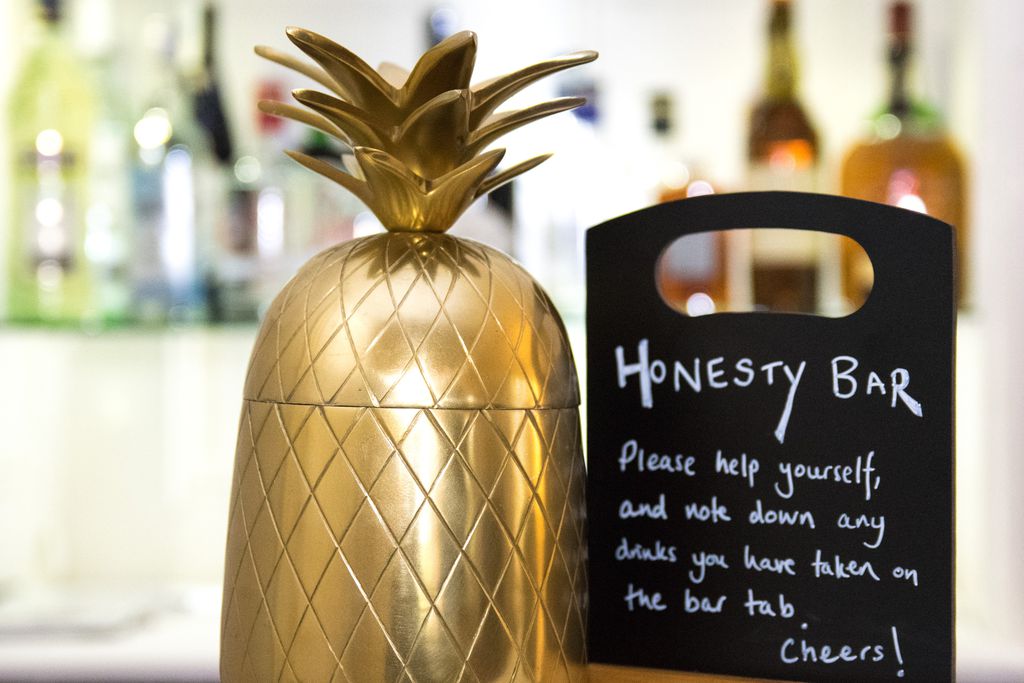 HONESTY BAR
Please help yourself,
and note down any
drinks you have taken on
the bar tab.
Cheers!